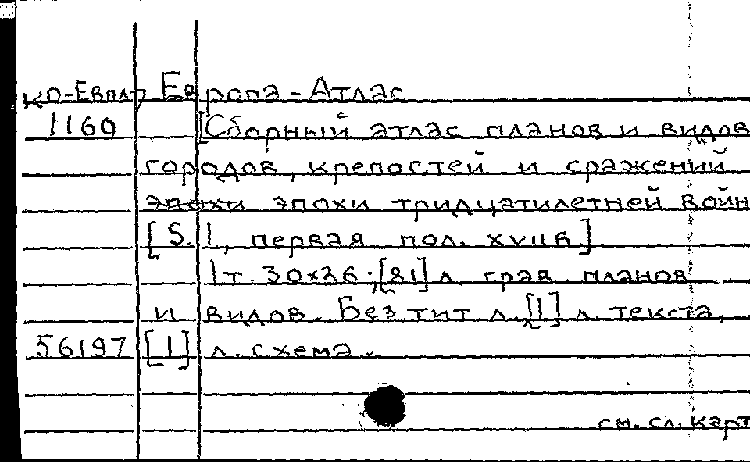 КО-Евпат Европа-Атлас
1160 [Сборный атлас планов и видов
городов, крепостей и сражений
эпохи эпохи тридцатилетней войн
[S. l, первая пол. XVII в]
1 т. 30×36; [81] л. грав планов
и видов. Без тит л. [1] л. текста,
56197 [1] л. схема.
см. сл. карт